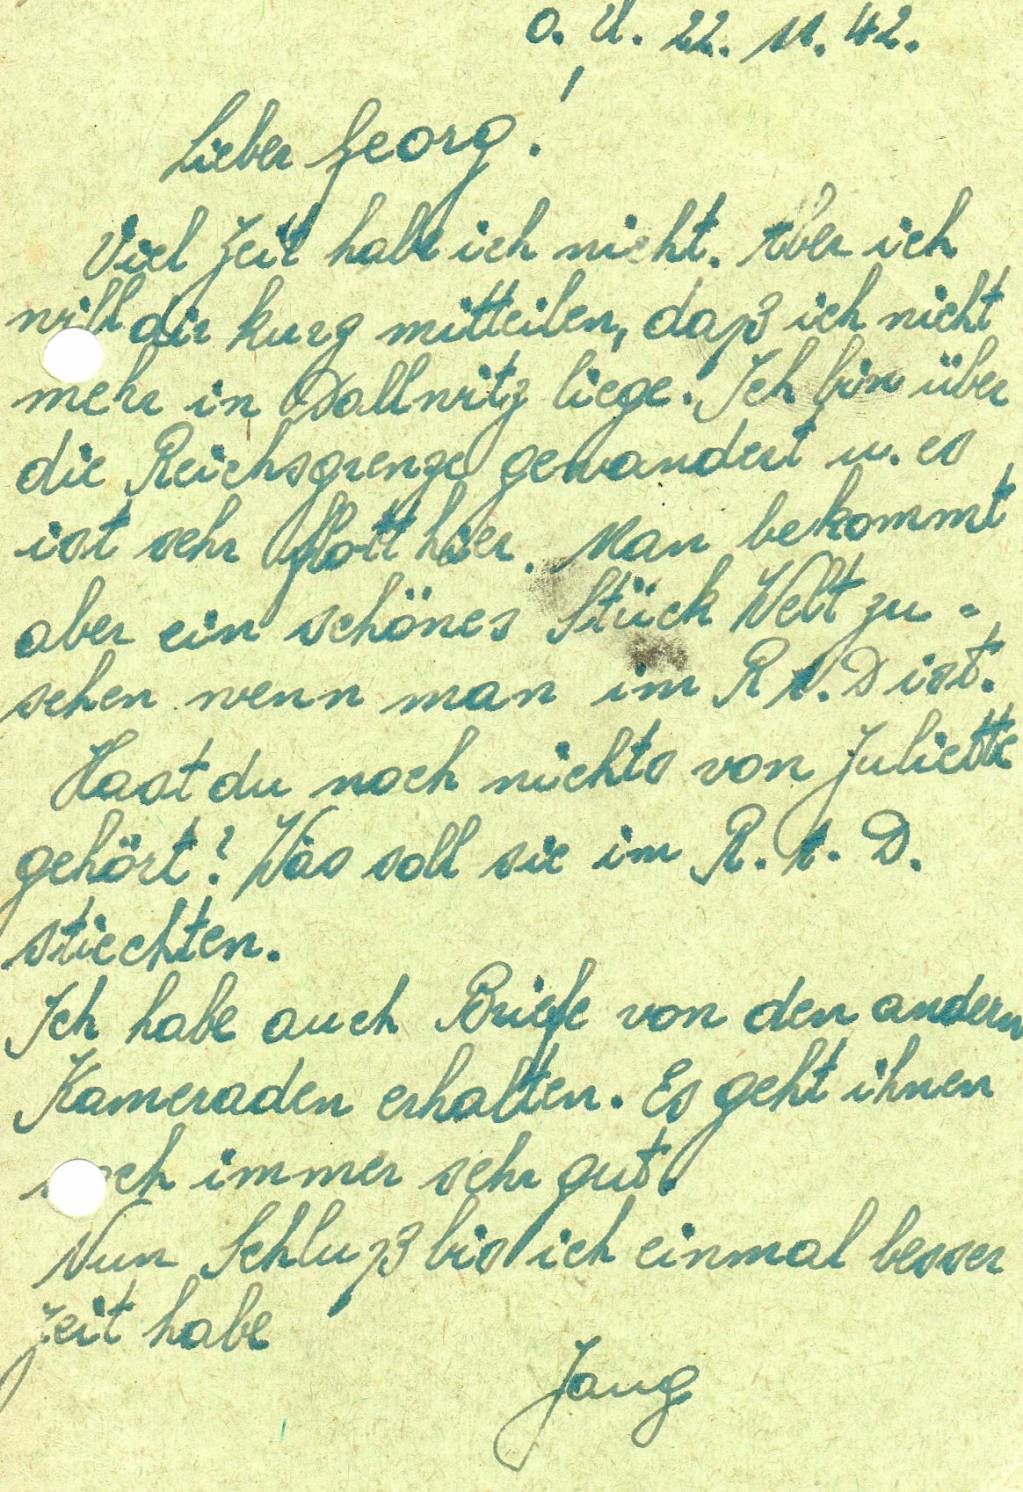 O. U. 22. 11. 42.
Lieber Georg!
Viel Zeit habe ich nicht. Aber ich
will dir kurz mitteilen, daß ich nicht
mehr in Dallwitz liege. Ich bin über
die Reichsgrenze gewandert u. es
ist sehr flott hier. Man bekommt
aber ein schönes Stück Welt zu-
sehen wenn man im R A. D ist.
Hast du noch nichts von Juliette
gehört? Was soll sie im R. A. D.
stiechten.
Ich habe auch Briefe von den andern
Kameraden erhalten. Es geht ihnen
noch immer sehr gut.
Nun Schluß bis ich einmal besser
Zeit habe